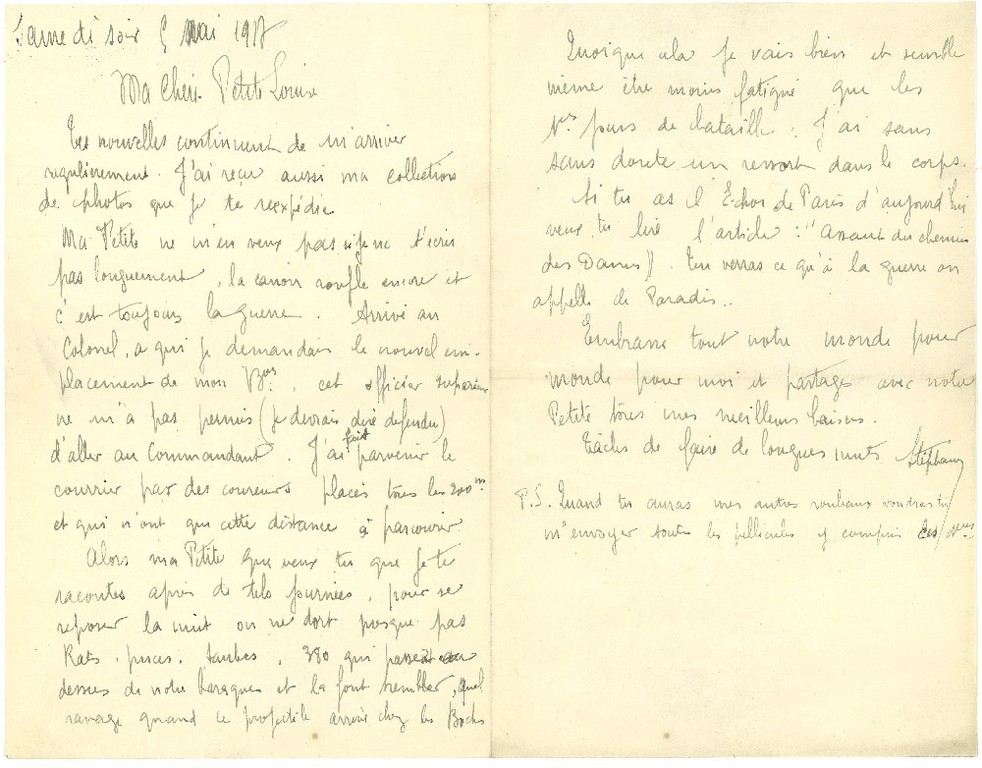 Samedi soir 5 mai 1917
Ma Chère Petite Louise
Tes nouvelles continuent de m'arriver
regulièrement. J'ai reçu aussi ma collection
de photos que je te reexpédie
Ma Petite ne m'en veux pas si je ne t'écris
pas longuement, la canon ronfle encore et
c'est toujours la guerre. Arrivé au
Colonel, a qui je demandais le nouvel em-
placement de mon Bon, cet officier superieur
ne m'a pas permis (je devrais dire defendu)
d'aller au Commandant. J'ai fait parvenir le
courrier par des coureurs placés tous les 200m
et qui n'ont que cette distance à parcourir
Alors ma Petite que veux tu que je te
racontes après de tels journées, pour se
reposer la nuit on ne dort presque pas
Rats. puces. taubes, 380 qui passent au
dessus de notre baraque et la font trembler, quel
ravage quand ce projectile arrive chez les Boches
Quoique cela je vais bien et semble
même être moins fatigué que les
1ers jours de bataille. J'ai sans
sans doute un ressort dans le corps.
Si tu as l'Echos de Paris d'aujourd'hui
veux tu lire l'article : "Assaut du chemin
des Dames)). Tu verras ce qu'à la guerre on
appelle le Paradis..
Embrasse tout notre monde pour
monde pour moi et partages avec notre
Petite tous mes meilleurs baisers.
Tâches de faire de longues nuits Stéphane
P.S. Quand tu auras mes autres rouleaux voudras tu
m'envoyer toutes les pellicules y compris les 1eres